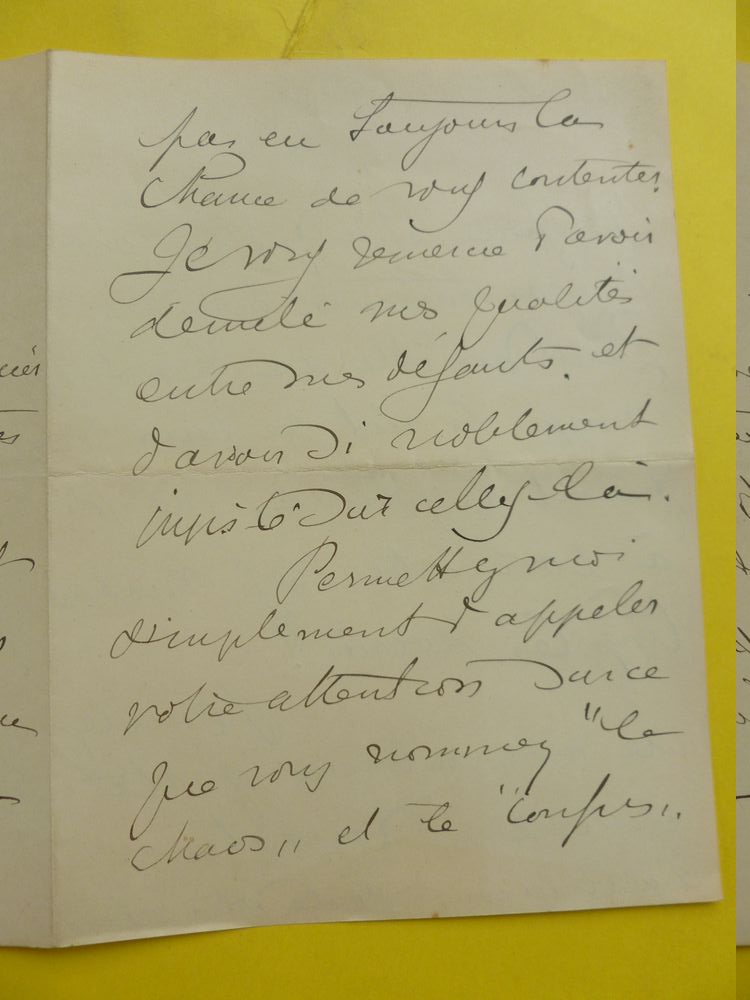 pas eu toujours la
chance de vous contenter.
Je vous remercie d'avoir
démêlé mes qualités
entre mes défauts, et
d'avoir si noblement
insisté sur celles-là.
Permettez moi
simplement d'appeler
votre attention sur ce
que vous nommez "le
chaos" et le "confus".